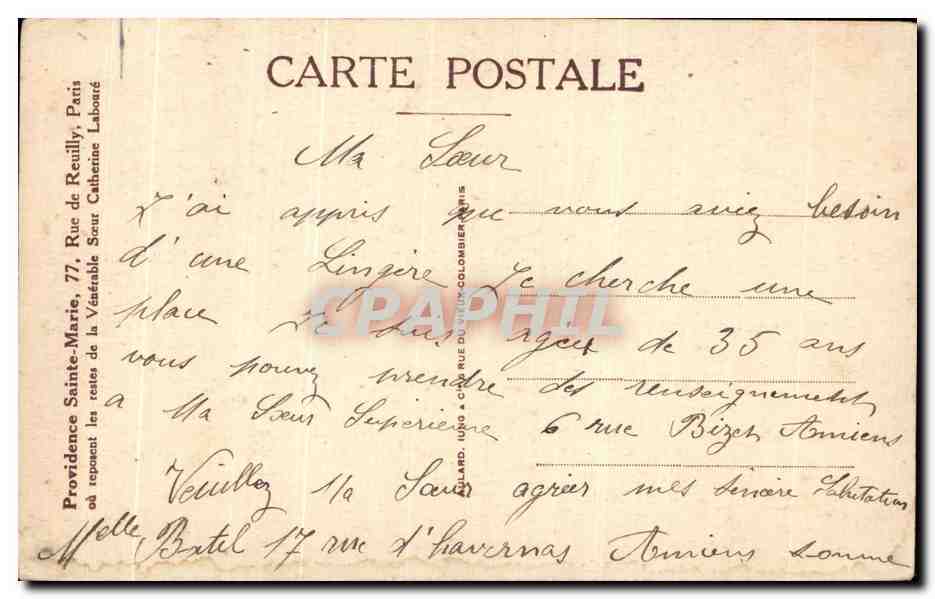 CARTE POSTALE
Providence Sainte-Marie, 77, Rue de Reuilly, Paris
où reposent les restes de la Vénérable Sœur Catherine Labouré
Ma Sœur
J'ai appris que vous aviez besoin
d'une Lingère Je cherche une
place Je suis agée de 35 ans
vous pouvez prendre des renseignements
a Ma Sœur Superieure 6 rue Bizet Amiens
Veuillez Ma Sœur agréer mes sincère Salutations
Melle Batel 17 rue d'havernas Amiens Somme
RUE DU VIEUX-COLOMBIER PARIS
CPAPHIL